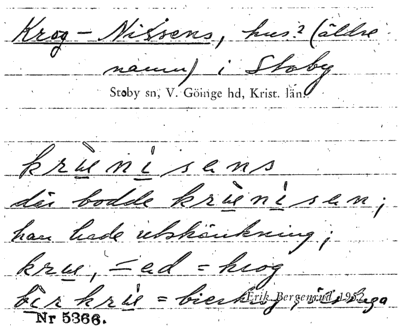 Krog-Nilsens, hus? (äldre
namn) i Stoby
Stoby sn, V. Göinge hd, Krist. län.
krùenìsens
där bodde krùenìsen;
han hade utskänkning;
krue, =ad = krog
Erik Bergenud 1952
Nr 5366.